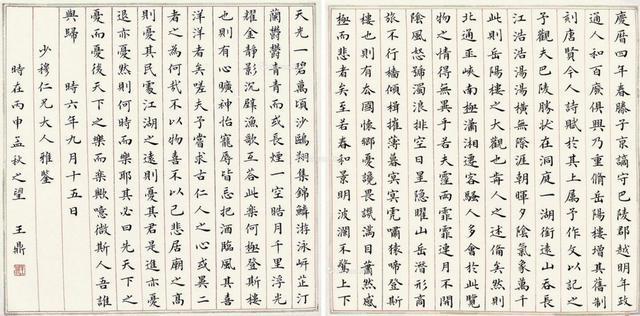 慶曆四年春滕子京謫守巴陵郡越明年政
通人和百廢俱興乃重脩岳陽樓增其舊制
刻唐賢今人詩賦於其上属予作文以記之
予觀夫巴陵勝狀在洞庭一湖銜遠山吞長
江浩浩湯湯橫無際涯朝暉夕陰氣象萬千
此則岳陽樓之大觀也前人之述備矣然則
北通巫峽南極瀟湘遷客騷人多會於此覽
物之情得無異乎若夫霪雨霏霏連月不開
陰風怒號濁浪排空日星隱曜山岳潛形商
旅不行檣傾楫摧薄暮冥冥虎嘯猿啼登斯
樓也則有去國懷鄉憂讒畏譏滿目蕭然感
極而悲者矣至若春和景明波瀾不驚上下
天光一碧萬頃沙鷗翔集錦鱗游泳岸芷汀
蘭欝欝青青而或長煙一空皓月千里浮光
耀金靜影沉璧漁歌互答此樂何極登斯樓
也則有心曠神怡寵辱皆忘把酒臨風其喜
洋洋者矣嗟夫予嘗求古仁人之心或異二
者之為何哉不以物喜不以己悲居廟之高
則憂其民處江湖之遠則憂其君是進亦憂
退亦憂然則何時而樂耶其必曰先天下之
憂而憂後天下之樂而樂歟噫微斯人吾誰
與歸 時六年九月十五日
少穆仁兄大人雅鑒
時在丙申孟秋之望 王鼎